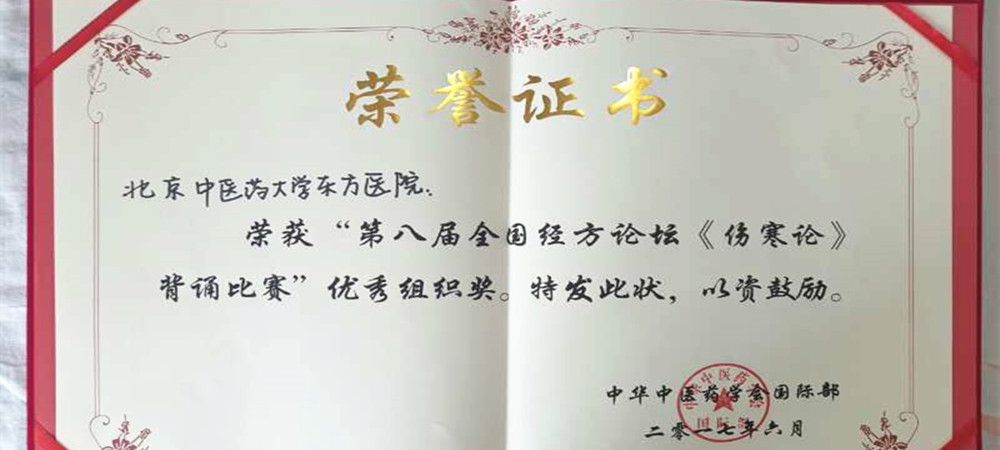 荣誉证书
北京中医药大学东方医院:
荣获“第八届全国经方论坛《伤寒论》
背诵比赛”优秀组织奖。特发此状，以资鼓励。
中华中医药学会国际部
二零一七年六月
中华中医药学会
国际部